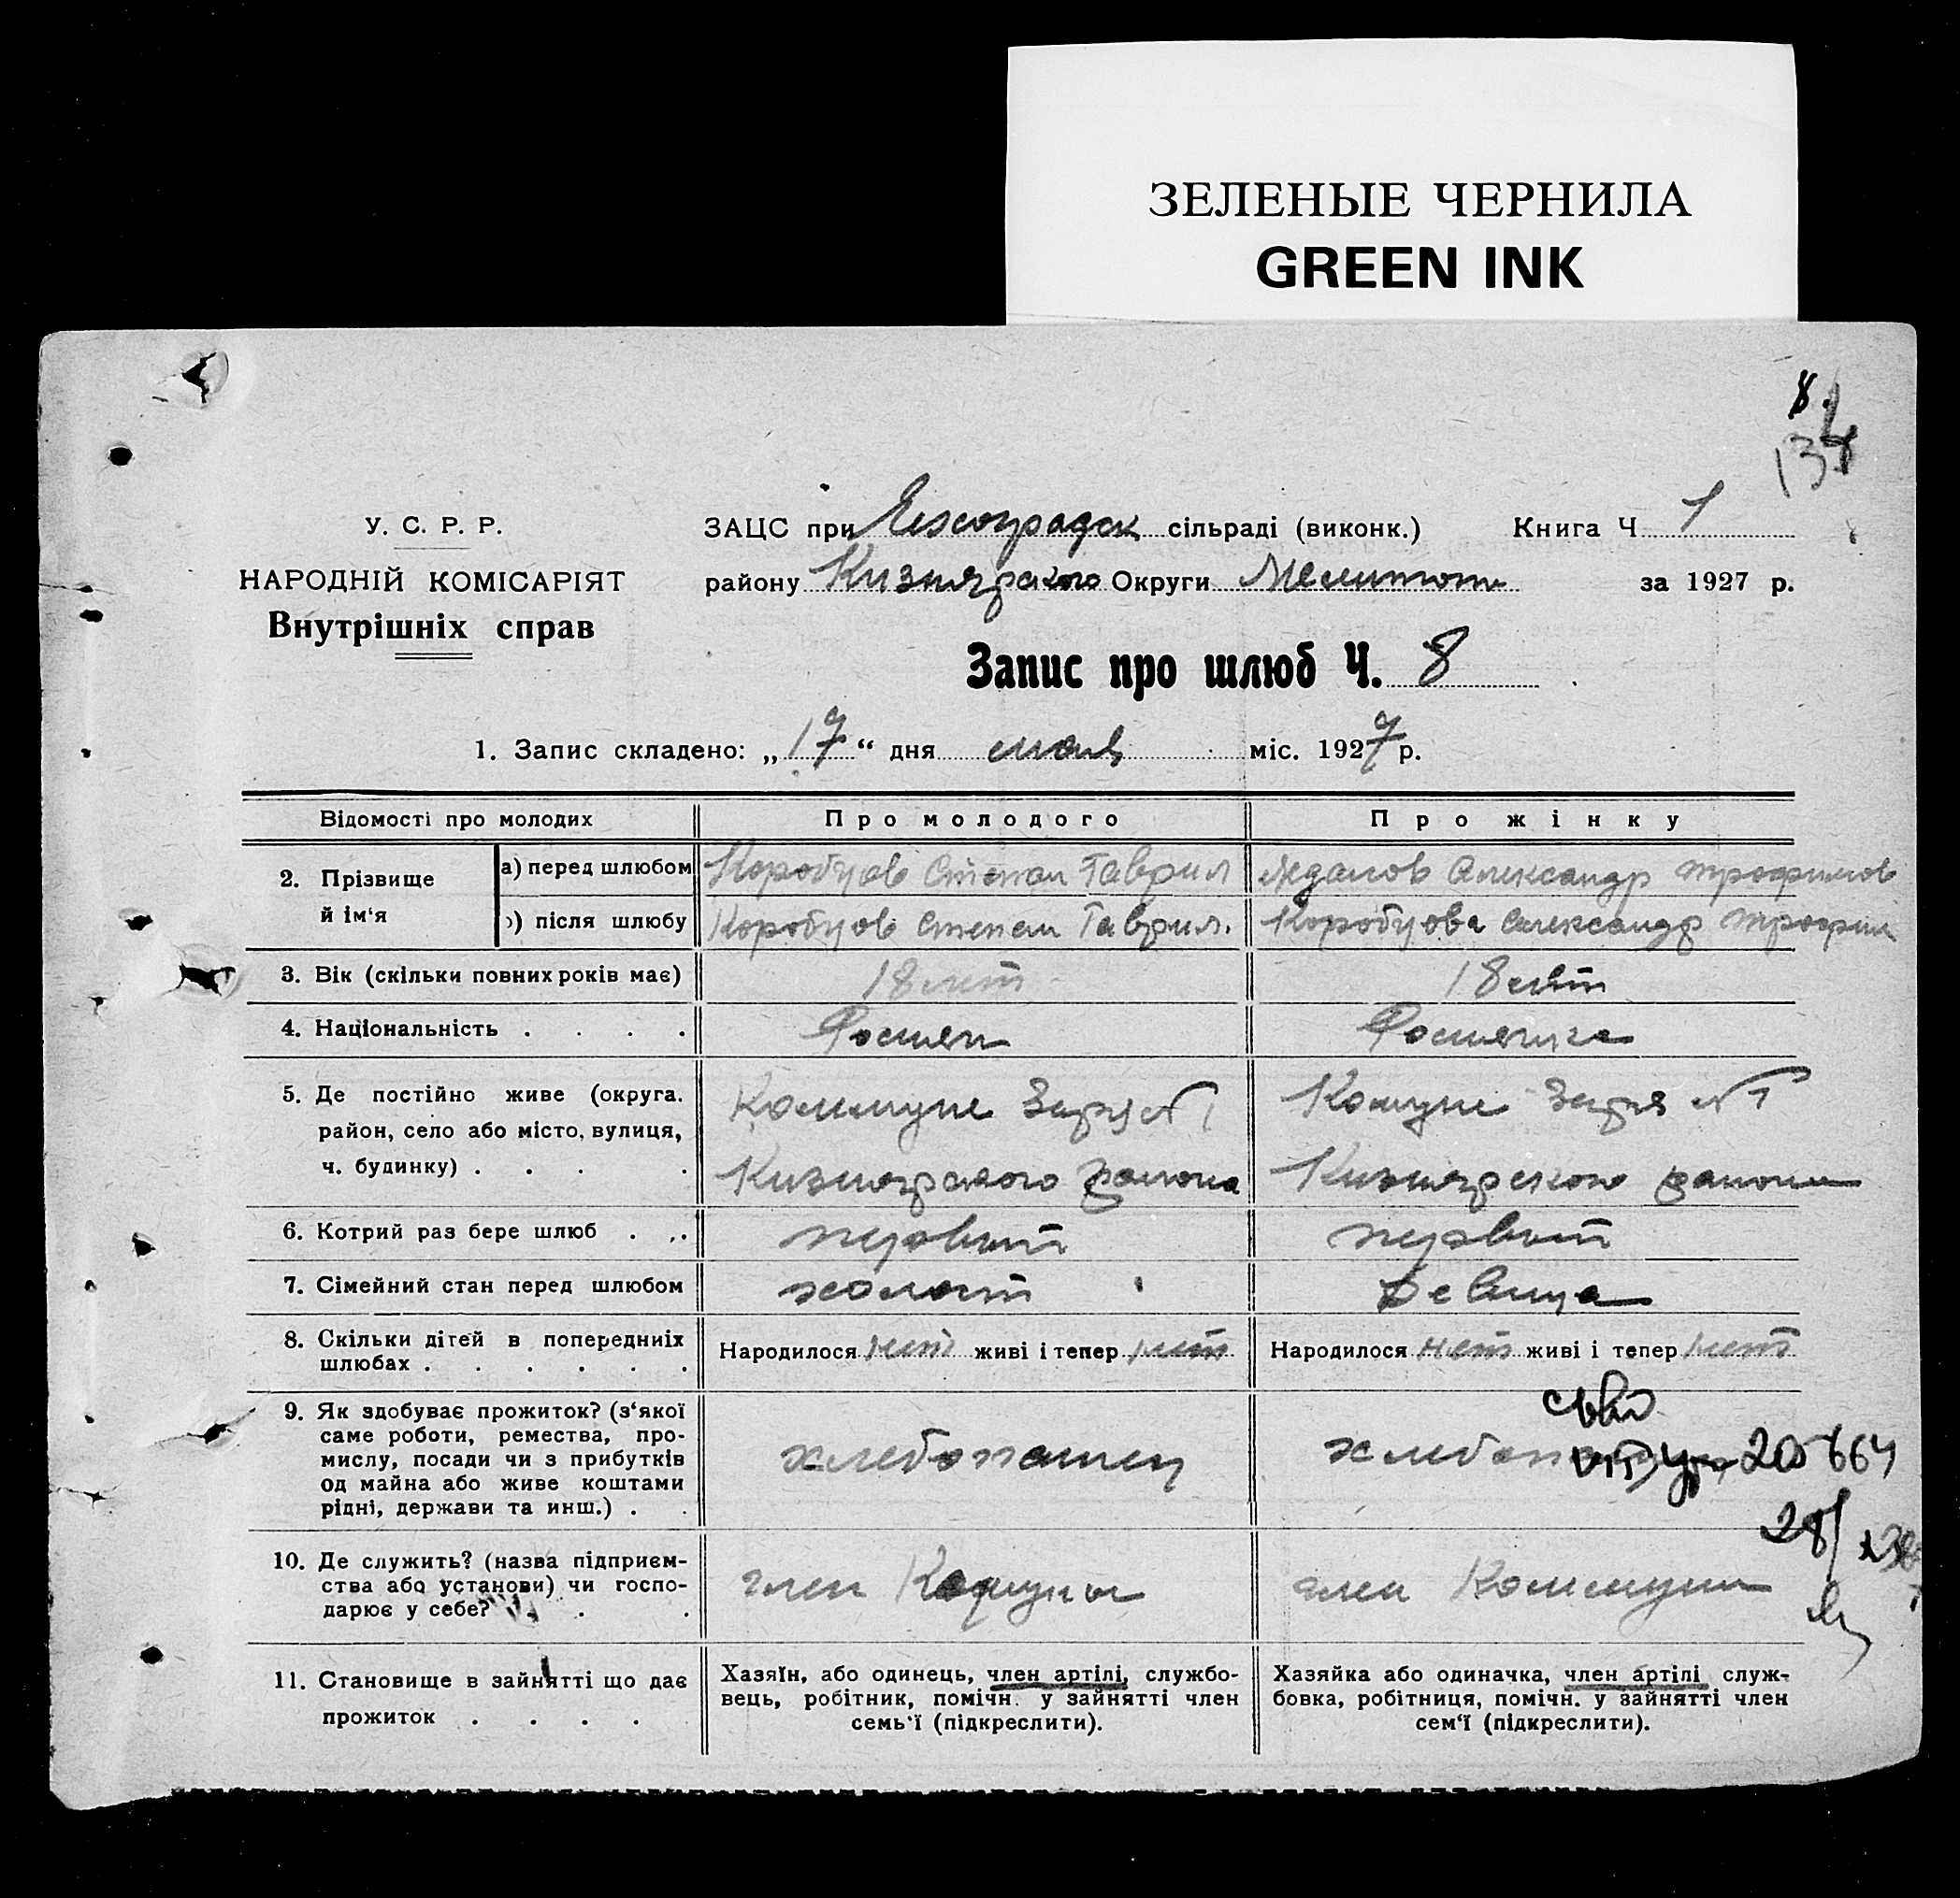 ЗЕЛЕНЫЕ ЧЕРНИЛА
GREEN INK
8.
134
У. С. Р. Р.
НАРОДНІЙ КОМІСАРІЯТ
Внутрішніх справ
ЗАЦС при сільраді (виконк.) Книга Ч 1
району Кизиярского Округи Мелитоп за 1927 р.
Запис про шлюб Ч. 8
1. Запис складено: „17“ дня мая міс. 1927 р.
Відомості про молодих Про молодого Про жінку
2. Прізвище й ім‘я
а) перед шлюбом Коробцов Степан Гаврил Александр Трофимов
) після шлюбу Коробцов Степан Гаврил. Коробцова Александр Трофим
3. Вік (скільки повних років має) 18 лет 18 лет
4. Національність . . . .
5. Де постійно живе (округа. район, село або місто, вулиця, ч. будинку) . . . .
Коммуне Заря №1
Кизиярского района
Комуне Заря №1
Кизиярского района
6. Котрий раз бере шлюб . .. первый первый
7. Сімейний стан перед шлюбом холост девица
8. Скільки дітей в попередниіх шлюбах . . . . . .
Народилося нет живі і тепер нет
Народилося нет живі і тепер нет
9. Як здобуває прожиток? (з‘якої
саме роботи, ремества, про-
мислу, посади чи з прибутків
од майна або живе коштами
рідні, держави та инш.) . .
хлебопашец
10. Де служить? (назва підприєм-
ства або установи) чи госпо-
дарює у себе? . . .
член Комуны
член Коммуны
28/
11. Становище в зайнятті що дає
прожиток . . . .
Хазяїн, або одинець, член артілі, службо-
вець, робітник, помічн. у зайнятті член
семь‘ї (підкреслити).
Хазяйка або одиначка, член артілі служ-
бовка, робітниця, помічн. у зайнятті член
сем‘ї (підкреслити).